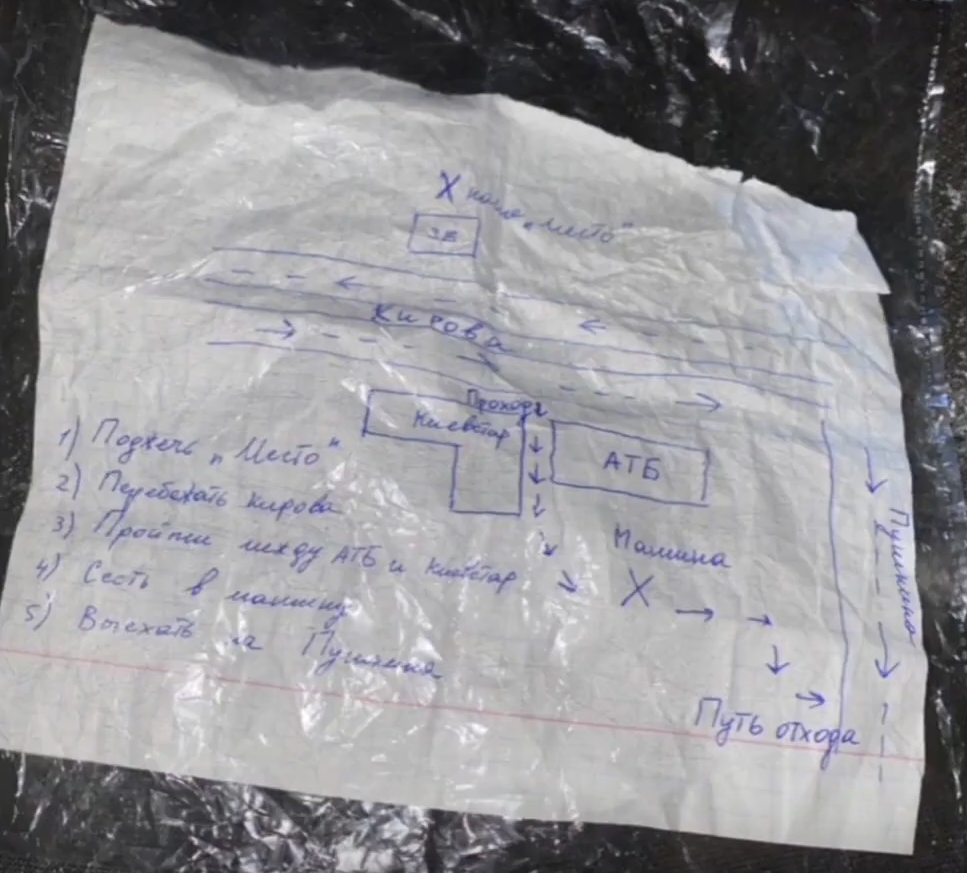 X наше „Место"
Кирова
Проход
Киевстар
АТБ
1) Поджечь „Место"
2) Перебежать Кирова
3) Пройти между АТБ и Киевстар
4) Сесть в машину
5) Выехать на Пушкина
Машина
X
Пушкина
Путь отхода